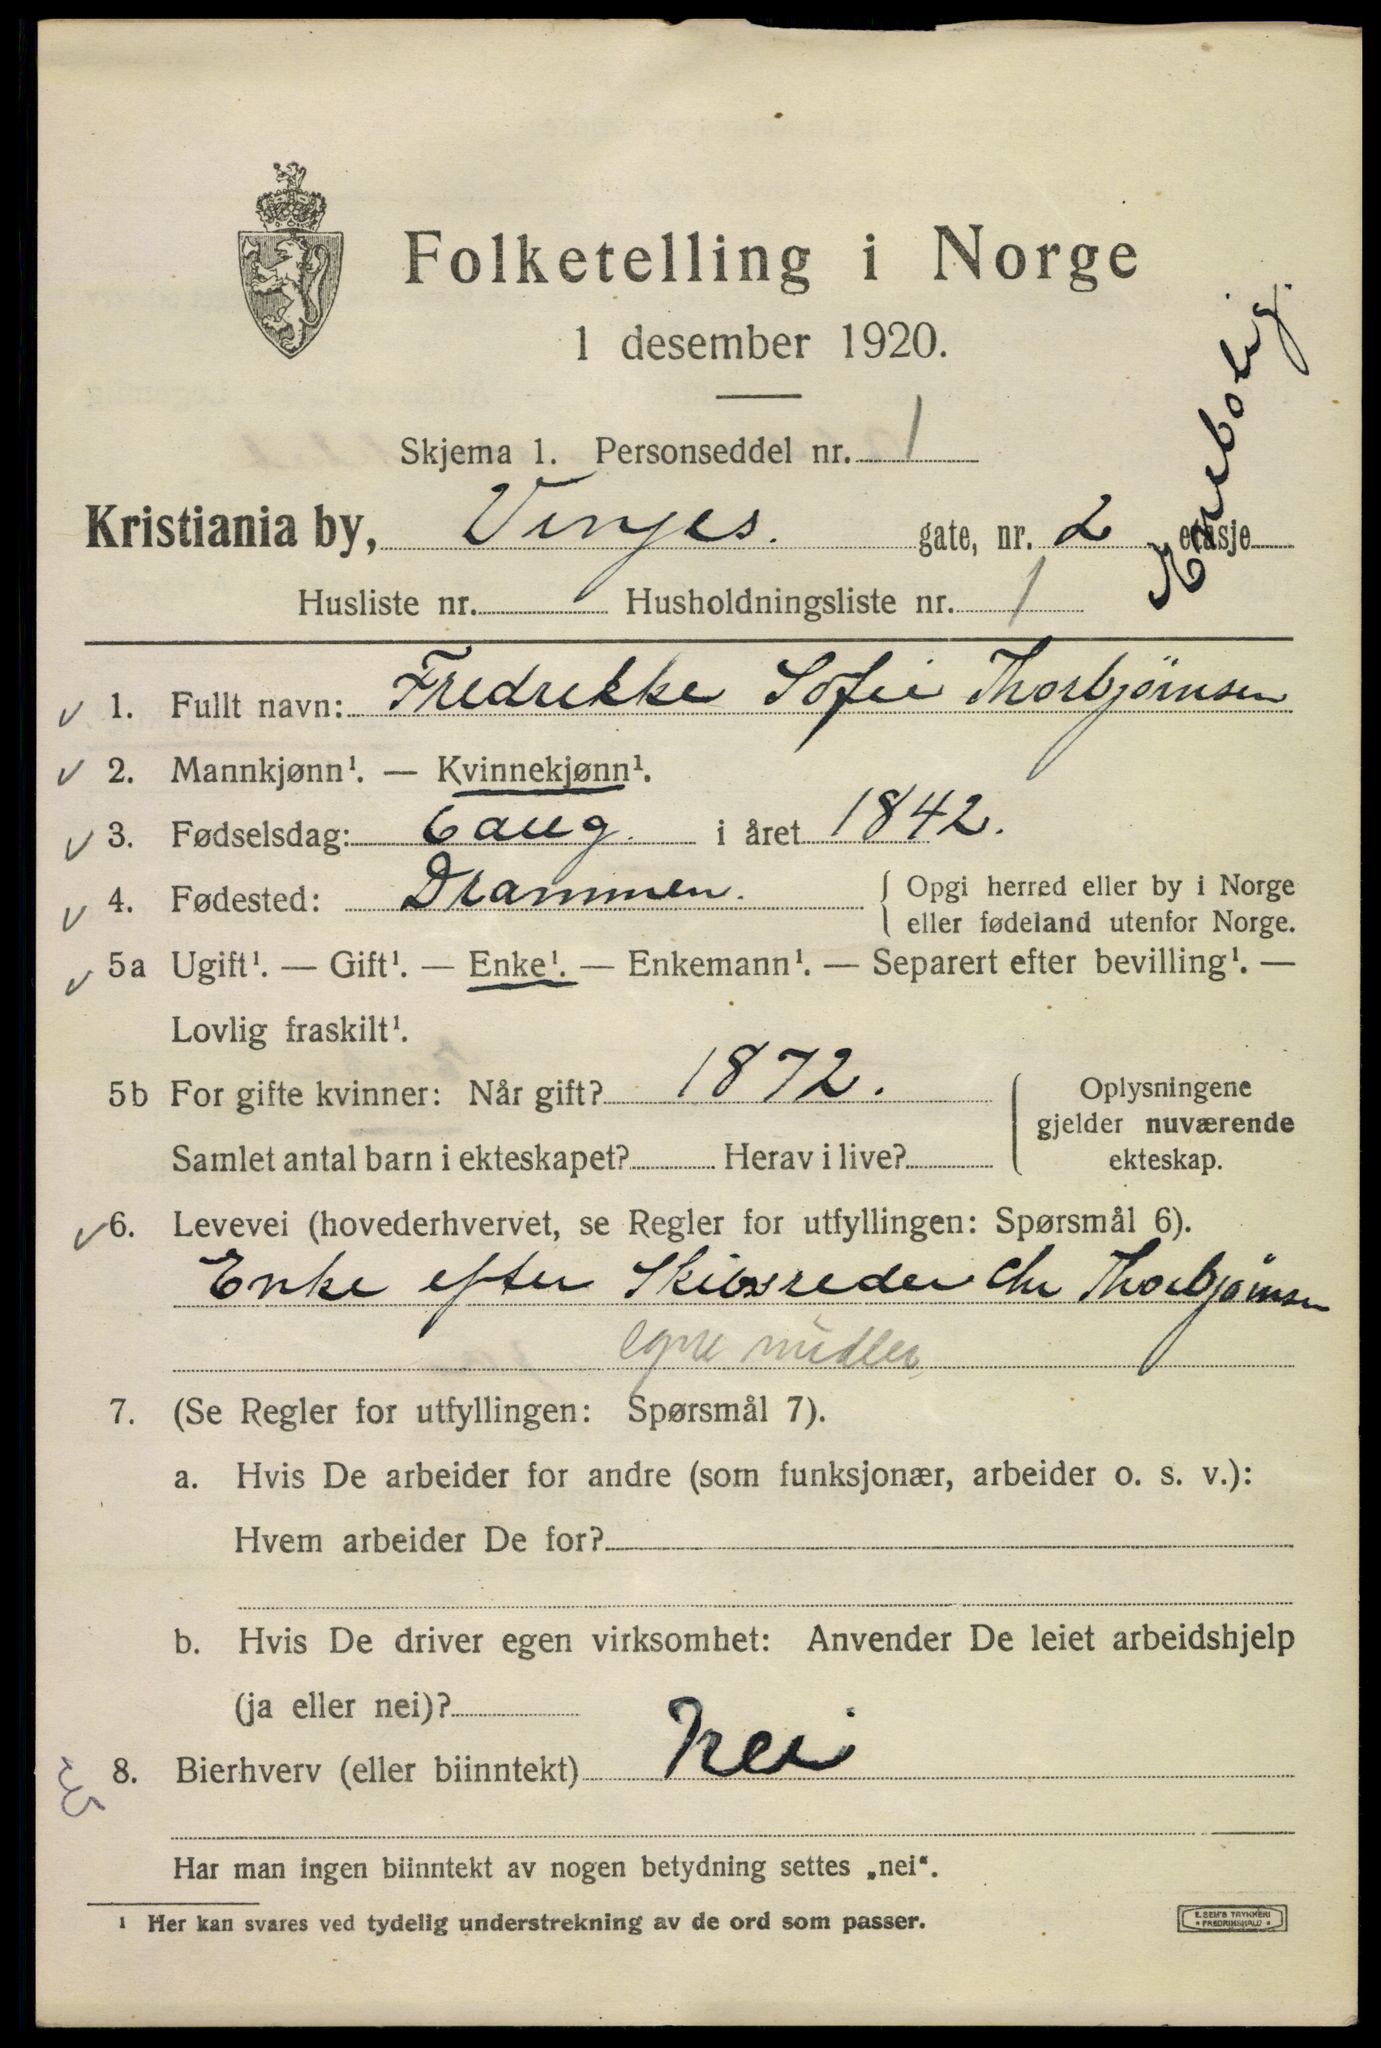 Folketelling i Norge
1 desember 1920.
Skjema 1. Personseddel nr. 1
Kristiania by, Vinjes. gate, nr. 2 etasje
Enebolig.
Husliste nr. Husholdningsliste nr. 1
1. Fullt navn: Fredrikke Sofie Thorbjørnsen
2. Mannkjønn¹. — Kvinnekjønn¹.
3. Fødselsdag: 6 aug. i året 1842.
4. Fødested: Drammen. { Opgi herred eller by i Norge
eller fødeland utenfor Norge.
5a Ugift¹. — Gift¹. — Enke¹. — Enkemann¹. — Separert efter bevilling¹. —
Lovlig fraskilt¹.
5b For gifte kvinner: Når gift? 1872. { Oplysningene
gjelder nuværende
Samlet antal barn i ekteskapet? Herav i live? ekteskap.
6. Levevei (hovederhvervet, se Regler for utfyllingen: Spørsmål 6).
Enke efter Skibsreder Chr Thorbjørnsen
egne midler
7. (Se Regler for utfyllingen: Spørsmål 7).
a. Hvis De arbeider for andre (som funksjonær, arbeider o. s. v.):
Hvem arbeider De for?
b. Hvis De driver egen virksomhet: Anvender De leiet arbeidshjelp
(ja eller nei)?
8. Bierhverv (eller biinntekt) Nei
Har man ingen biinntekt av nogen betydning settes „nei“.
¹ Her kan svares ved tydelig understrekning av de ord som passer.
E. SEM'S TRYKKERI
* FREDRIKSHALD *